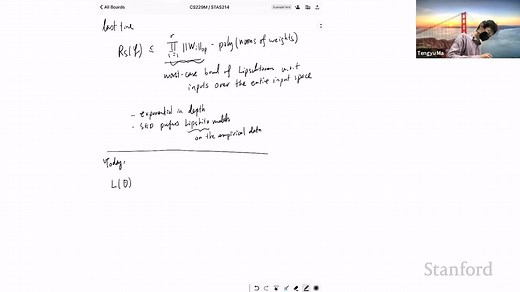 All Boards
CS229M / STAS214
last time
Rs(F) ≤ ∏ ||Wi||op · poly(norms of weights)
r
i=1
worst-case bound of Lipschitzness w.r.t
inputs over the entire input space
- exponential in depth
- SGD prefers Lipschitz models
on the empirical data
Today:
L(θ)
Tengyu Ma
Stanford